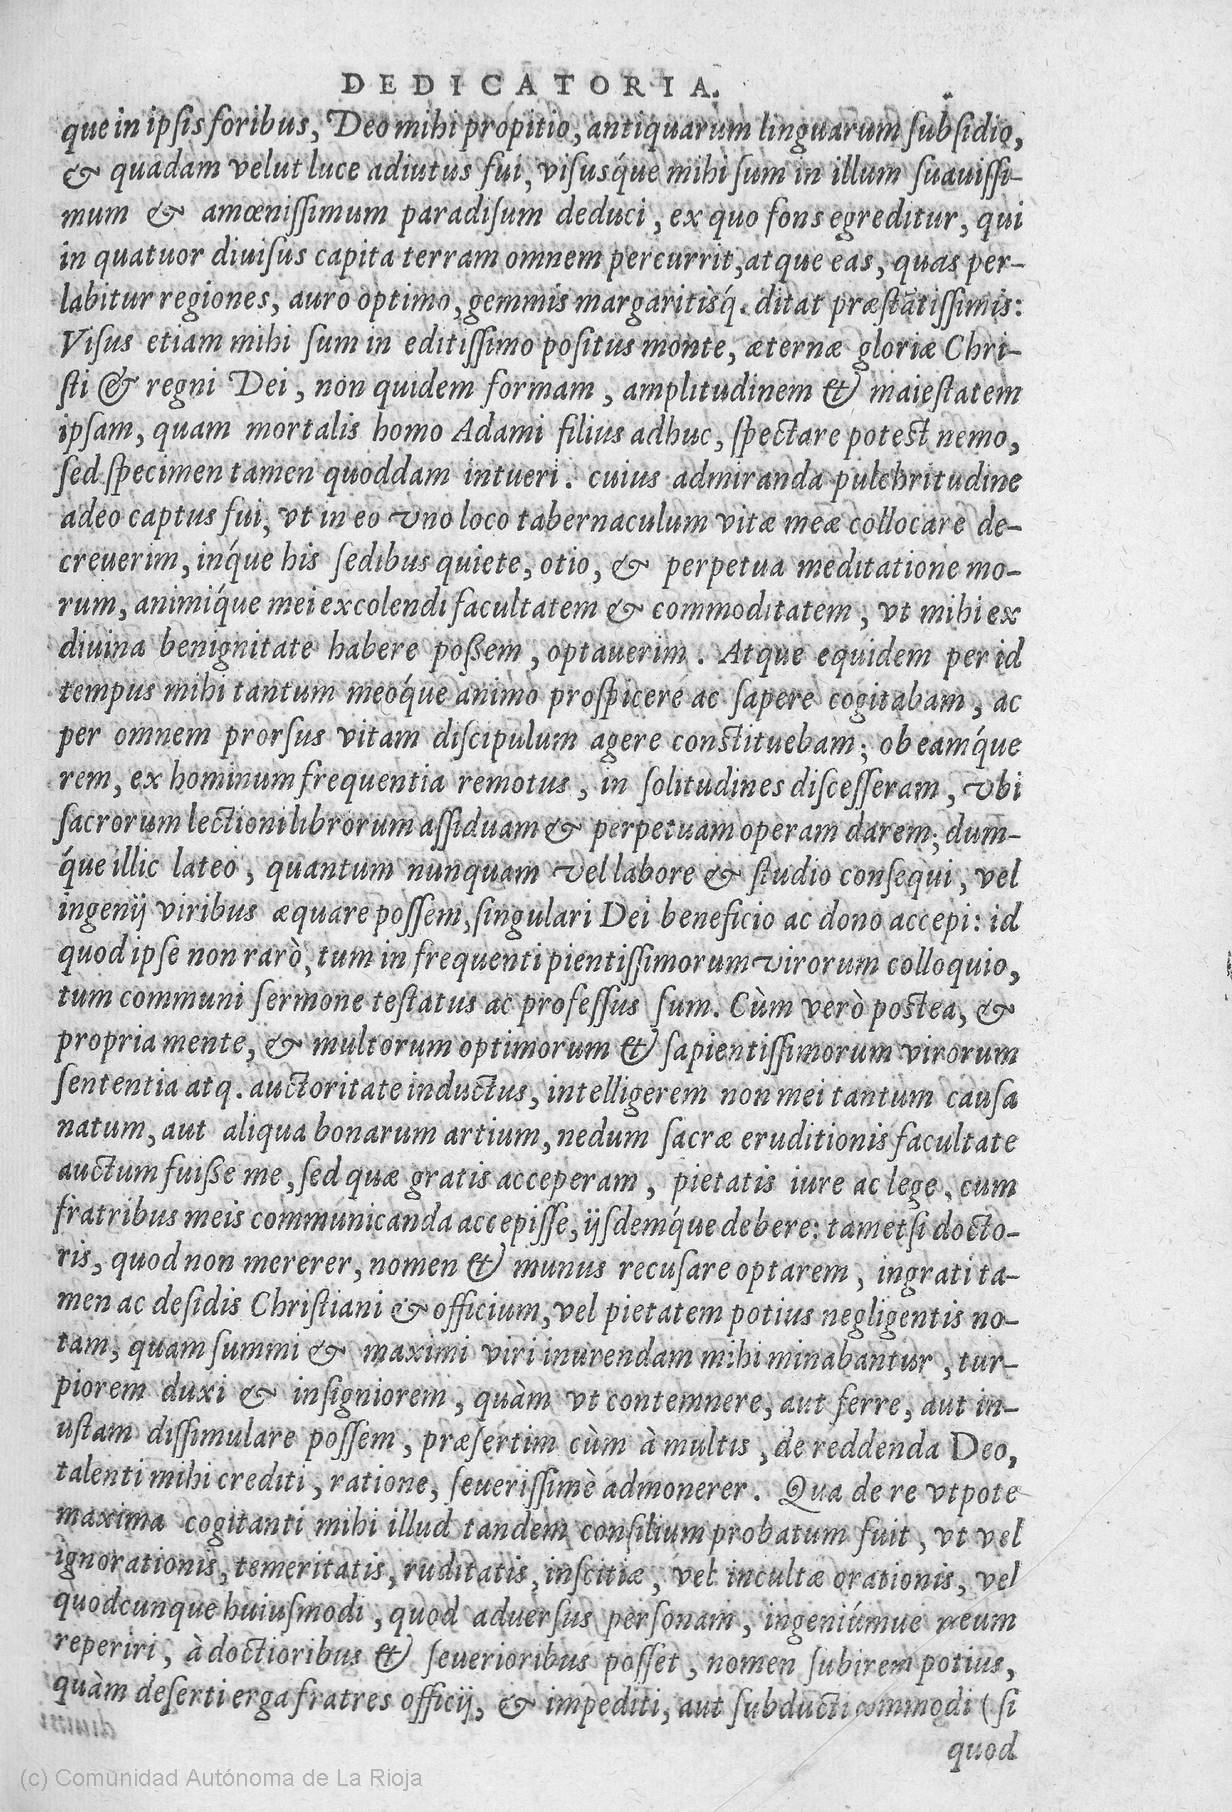 DEDICATORIA.
que in ipsis foribus, Deo mihi propitio, antiquarum linguarum subsidio,
& quadam velut luce adiutus fui, visusq́ue mihi sum in illum suauissi-
mum & amœnissimum paradisum deduci, ex quo fons egreditur, qui
in quatuor diuisus capita terram omnem percurrit, atque eas, quas per-
labitur regiones, auro optimo, gemmis margaritisq́. ditat præstātissimis:
Visus etiam mihi sum in editissimo positus monte, æternæ gloriæ Chri-
sti & regni Dei, non quidem formam, amplitudinem & maiestatem
ipsam, quam mortalis homo Adami filius adhuc, spectare potest nemo,
sed specimen tamen quoddam intueri. cuius admiranda pulchritudine
adeo captus fui, vt in eo vno loco tabernaculum vitæ meæ collocare de-
creuerim, inq́ue his sedibus quiete, otio, & perpetua meditatione mo-
rum, animiq́ue mei excolendi facultatem & commoditatem, vt mihi ex
diuina benignitate habere possem, optauerim. Atque equidem per id
tempus mihi tantum meoq́ue animo prospicere ac sapere cogitabam, ac
per omnem prorsus vitam discipulum agere constituebam; ob eamq́ue
rem, ex hominum frequentia remotus, in solitudines discesseram, vbi
sacrorum lectioni librorum assiduam & perpetuam operam darem; dum-
q́ue illic lateo, quantum nunquam vel labore & studio consequi, vel
ingenij viribus æquare possem, singulari Dei beneficio ac dono accepi: id
quod ipse non rarò, tum in frequenti pientissimorum virorum colloquio,
tum communi sermone testatus ac professus sum. Cùm verò postea, &
propria mente, & multorum optimorum & sapientissimorum virorum
sententia atq. auctoritate inductus, intelligerem non mei tantum causa
natum, aut aliqua bonarum artium, nedum sacræ eruditionis facultate
auctum fuisse me, sed quæ gratis acceperam, pietatis iure ac lege, cum
fratribus meis communicanda accepisse, ijsdemq́ue debere: tametsi docto-
ris, quod non mererer, nomen & munus recusare optarem, ingrati ta-
men ac desidis Christiani & officium, vel pietatem potius negligentis no-
tam, quam summi & maximi viri inurendam mihi minabantur, tur-
piorem duxi & insigniorem, quàm vt contemnere, aut ferre, aut in-
ustam dissimulare possem, præsertim cùm à multis, de reddenda Deo,
talenti mihi crediti, ratione, seuerissimè admonerer. Qua de re vtpote
maxima cogitanti mihi illud tandem consilium probatum fuit, vt vel
ignorationis, temeritatis, ruditatis, inscitiæ, vel incultæ orationis, vel
quodcunque huiusmodi, quod aduersus personam, ingeniúmue meum
reperiri, à doctioribus & seuerioribus posset, nomen subirem potius,
quàm deserti erga fratres officij, & impediti, aut subducti commodi (si
quod
(c) Comunidad Autónoma de La Rioja